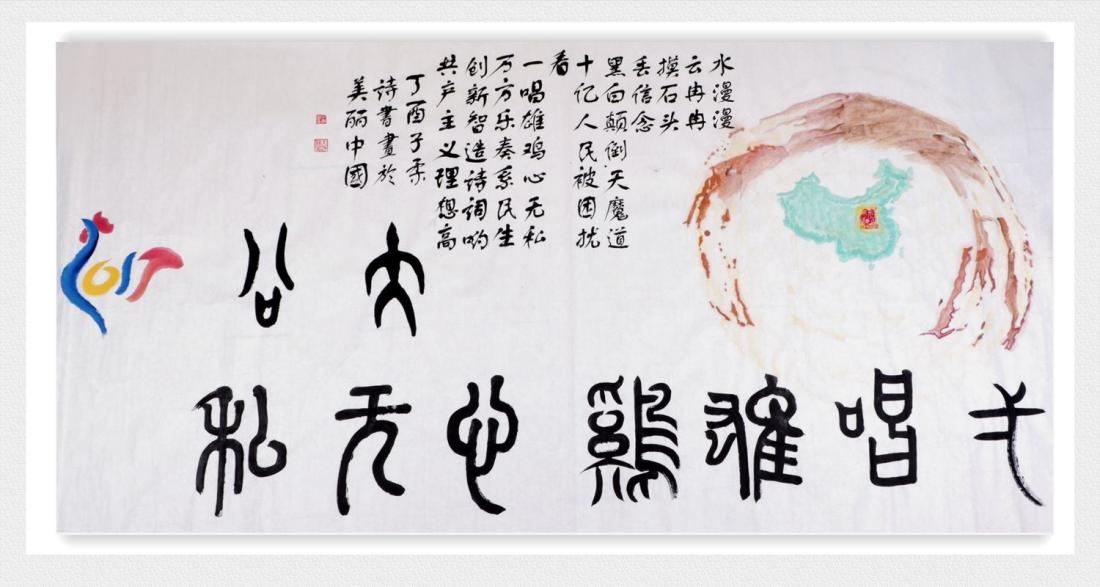 水漫漫
云冉冉
摸石头
丢信念
黑白颠倒天魔道
十亿人民被困扰
看
一唱雄鸡心无私
万方乐奏系民生
创新智造诗词哟
共产主义理想高
丁酉子柔
詩書畫於
美丽中國
大公
唱雄鷄心无私
2017